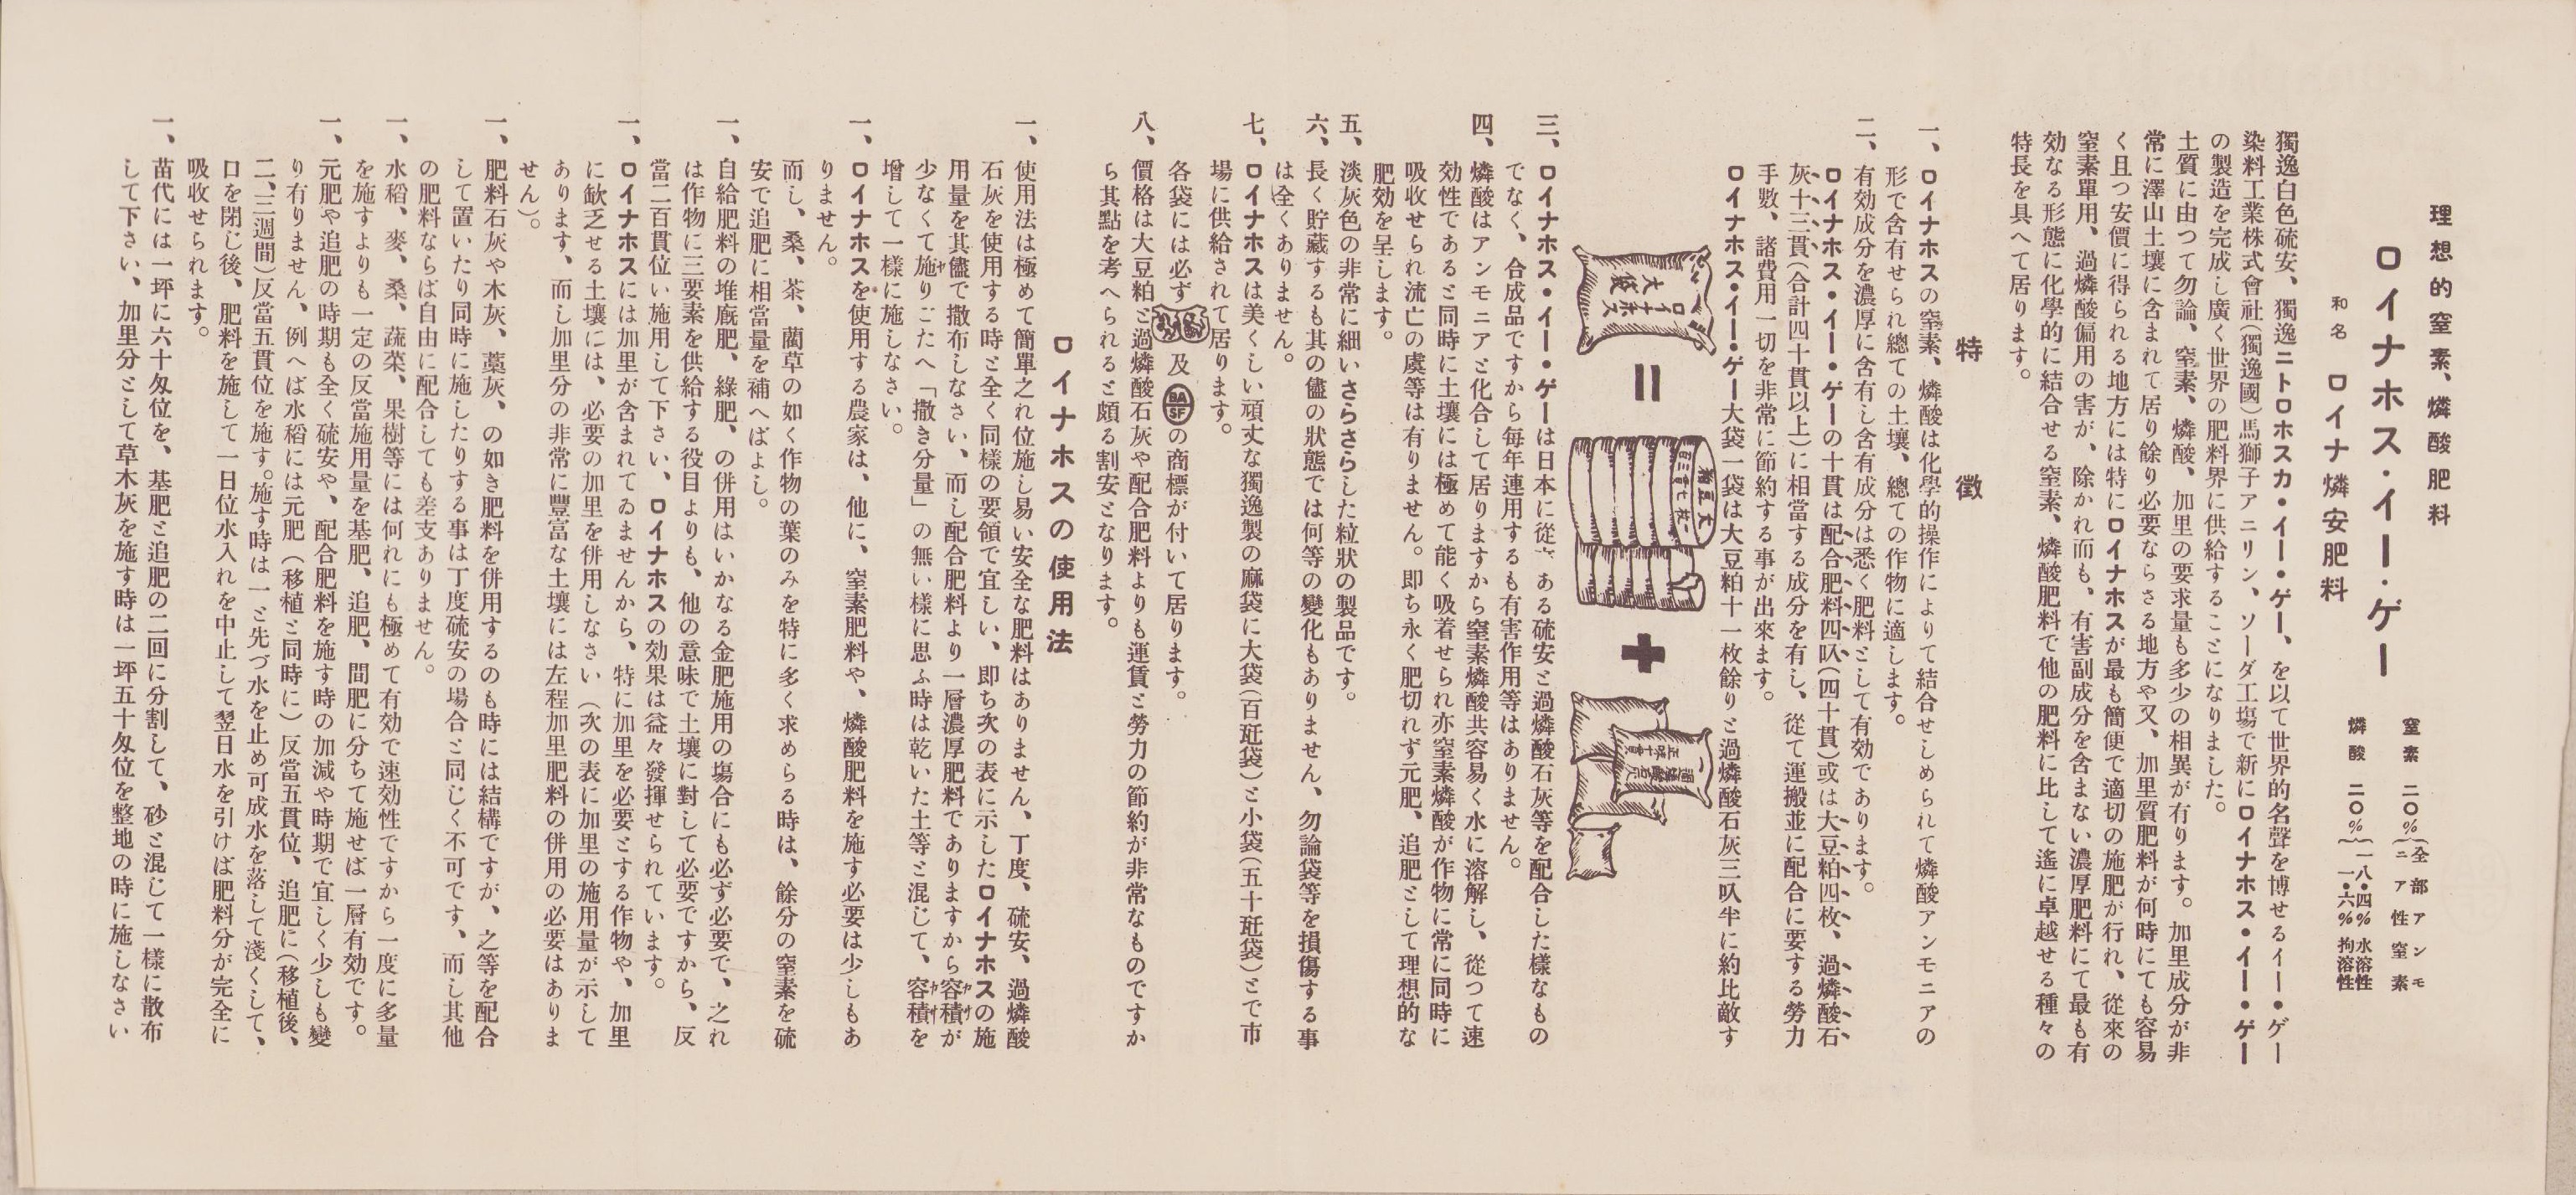 理想的窒素、燐酸肥料
ロイナホス・イー・ゲー
和名 ロイナ燐安肥料
窒素 二〇% (全部アンモニア性窒素
燐酸 二〇% (一八・四% 水溶性 一・六% 拘溶性
獨逸白色硫安、獨逸ニトロホスカ・イー・ゲー、を以て世界的名聲を博せるイー・ゲー
染料工業株式會社(獨逸國)馬獅子アニリン、ソーダ工塲で新にロイナホス・イー・ゲー
の製造を完成し廣く世界の肥料界に供給することになりました。
土質に由つて勿論、窒素、燐酸、加里の要求量も多少の相異が有ります。加里成分が非
常に澤山土壤に含まれて居り餘り必要ならざる地方や又、加里質肥料が何時にても容易
く且つ安價に得られる地方には特にロイナホスが最も簡便で適切の施肥が行れ、從來の
窒素單用、過燐酸偏用の害が、除かれ而も、有害副成分を含まない濃厚肥料にて最も有
効なる形態に化學的に結合せる窒素、燐酸肥料で他の肥料に比して遙に卓越せる種々の
特長を具へて居ります。
特徵
一、ロイナホスの窒素、燐酸は化學的操作によりて結合せしめられて燐酸アンモニアの
形で含有せられ總ての土壤、總ての作物に適します。
二、有効成分を濃厚に含有し含有成分は悉く肥料として有効であります。
ロイナホス・イー・ゲーの十貫は配合肥料四叺(四十貫)或は大豆粕四枚、過燐酸石
灰十三貫(合計四十貫以上)に相當する成分を有し、從て運搬並に配合に要する勞力
手數、諸費用一切を非常に節約する事が出來ます。
ロイナホス・イー・ゲー大袋一袋は大豆粕十一枚餘りと過燐酸石灰三叺半に約比敵す
ロイナホス
大袋
=
大豆粕
+
三、ロイナホス・イー・ゲーは日本に從ある硫安と過燐酸石灰等を配合した樣なもの
でなく、合成品ですから每年連用するも有害作用等はありません。
四、燐酸はアンモニアと化合して居りますから窒素燐酸共容易く水に溶解し、從つて速
効性であると同時に土壤には極めて能く吸着せられ亦窒素燐酸が作物に常に同時に
吸收せられ流亡の虞等は有りません。即ち永く肥切れず元肥、追肥として理想的な
肥効を呈します。
五、淡灰色の非常に細いさらさらした粒狀の製品です。
六、長く貯藏するも其の儘の狀態では何等の變化もありません、勿論袋等を損傷する事
は全くありません。
七、ロイナホスは美くしい頑丈な獨逸製の麻袋に大袋(百瓩袋)と小袋(五十瓩袋)とで市
場に供給されて居ります。
各袋には必ず 及 BASF の商標が付いて居ります。
八、價格は大豆粕と過燐酸石灰や配合肥料よりも運賃と勞力の節約が非常なものですか
ら其點を考へられると頗る割安となります。
ロイナホスの使用法
一、使用法は極めて簡單之れ位施し易い安全な肥料はありません、丁度、硫安、過燐酸
石灰を使用する時と全く同樣の要領で宜しい、即ち次の表に示したロイナホスの施
用量を其儘で撒布しなさい、而し配合肥料より一層濃厚肥料でありますから容積が
少なくて施りこたへ「撒き分量」の無い樣に思ふ時は乾いた土等と混じて、容積を
增して一樣に施しなさい。
一、ロイナホスを使用する農家は、他に、窒素肥料や、燐酸肥料を施す必要は少しもあ
りません。
而し、桑、茶、藺草の如く作物の葉のみを特に多く求めらる時は、餘分の窒素を硫
安で追肥に相當量を補へばよし。
一、自給肥料の堆廐肥、綠肥、の併用はいかなる金肥施用の塲合にも必ず必要で、之れ
は作物に三要素を供給する役目よりも、他の意味で土壤に對して必要ですから、反
當二百貫位い施用して下さい、ロイナホスの効果は益々發揮せられています。
一、ロイナホスには加里が含まれてゐませんから、特に加里を必要とする作物や、加里
に歓乏せる土壤には、必要の加里を併用しなさい(次の表に加里の施用量が示して
あります、而し加里分の非常に豐富な土壤には左程加里肥料の併用の必要はありま
せん)。
一、肥料石灰や木灰、藁灰、の如き肥料を併用するのも時には結構ですが、之等を配合
して置いたり同時に施したりする事は丁度硫安の場合と同じく不可です、而し其他
の肥料ならば自由に配合しても差支ありません。
一、水稻、麥、桑、蔬菜、果樹等には何れにも極めて有効で速効性ですから一度に多量
を施すよりも一定の反當施用量を基肥、追肥、間肥に分ちて施せば一層有効です。
一、元肥や追肥の時期も全く硫安や、配合肥料を施す時の加減や時期で宜しく少しも變
り有りません、例へば水稻には元肥(移植と同時に)反當五貫位、追肥に(移植後、
二、三週間)反當五貫位を施す。施す時は一と先づ水を止め可成水を落して淺くして、
口を閉じ後、肥料を施して一日位水入れを中止して翌日水を引けば肥料分が完全に
吸收せられます。
一、苗代には一坪に六十匁位を、基肥と追肥の二回に分割して、砂と混じて一樣に散布
して下さい、加里分として草木灰を施す時は一坪五十匁位を整地の時に施しなさい